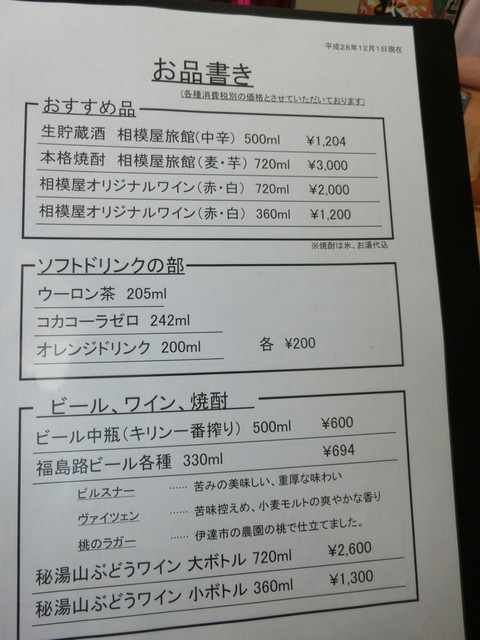 平成28年12月1日現在
お品書き
(各種消費税別の価格とさせていただいております)
おすすめ品
生貯蔵酒 相模屋旅館(中辛) 500ml ¥1,204
本格焼酎 相模屋旅館(麦・芋) 720ml ¥3,000
相模屋オリジナルワイン(赤・白) 720ml ¥2,000
相模屋オリジナルワイン(赤・白) 360ml ¥1,200
※焼酎は氷、お湯代込
ソフトドリンクの部
ウーロン茶 205ml
コカコーラゼロ 242ml
オレンジドリンク 200ml 各 ¥200
ビール、ワイン、焼酎
ビール中瓶(キリン一番搾り) 500ml ¥600
福島路ビール各種 330ml ¥694
ピルスナー …… 苦みの美味しい、重厚な味わい
ヴァイツェン …… 苦味控えめ、小麦モルトの爽やかな香り
桃のラガー …… 伊達市の農園の桃で仕立てました。
秘湯山ぶどうワイン 大ボトル 720ml ¥2,600
秘湯山ぶどうワイン 小ボトル 360ml ¥1,300